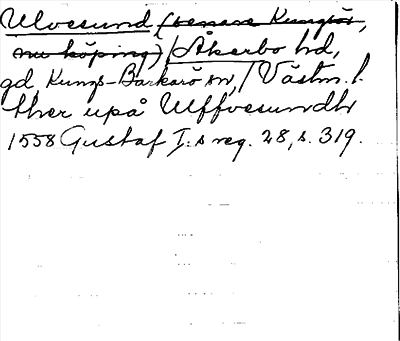 Ulvesund (senare Kungsör,
nu köping) / Åkerbo hd,
gd Kungs-Barkarö sn, / Västm. l.
ther upå Ulffvesundh
1558 Gustaf I:s reg. 28, s. 319.